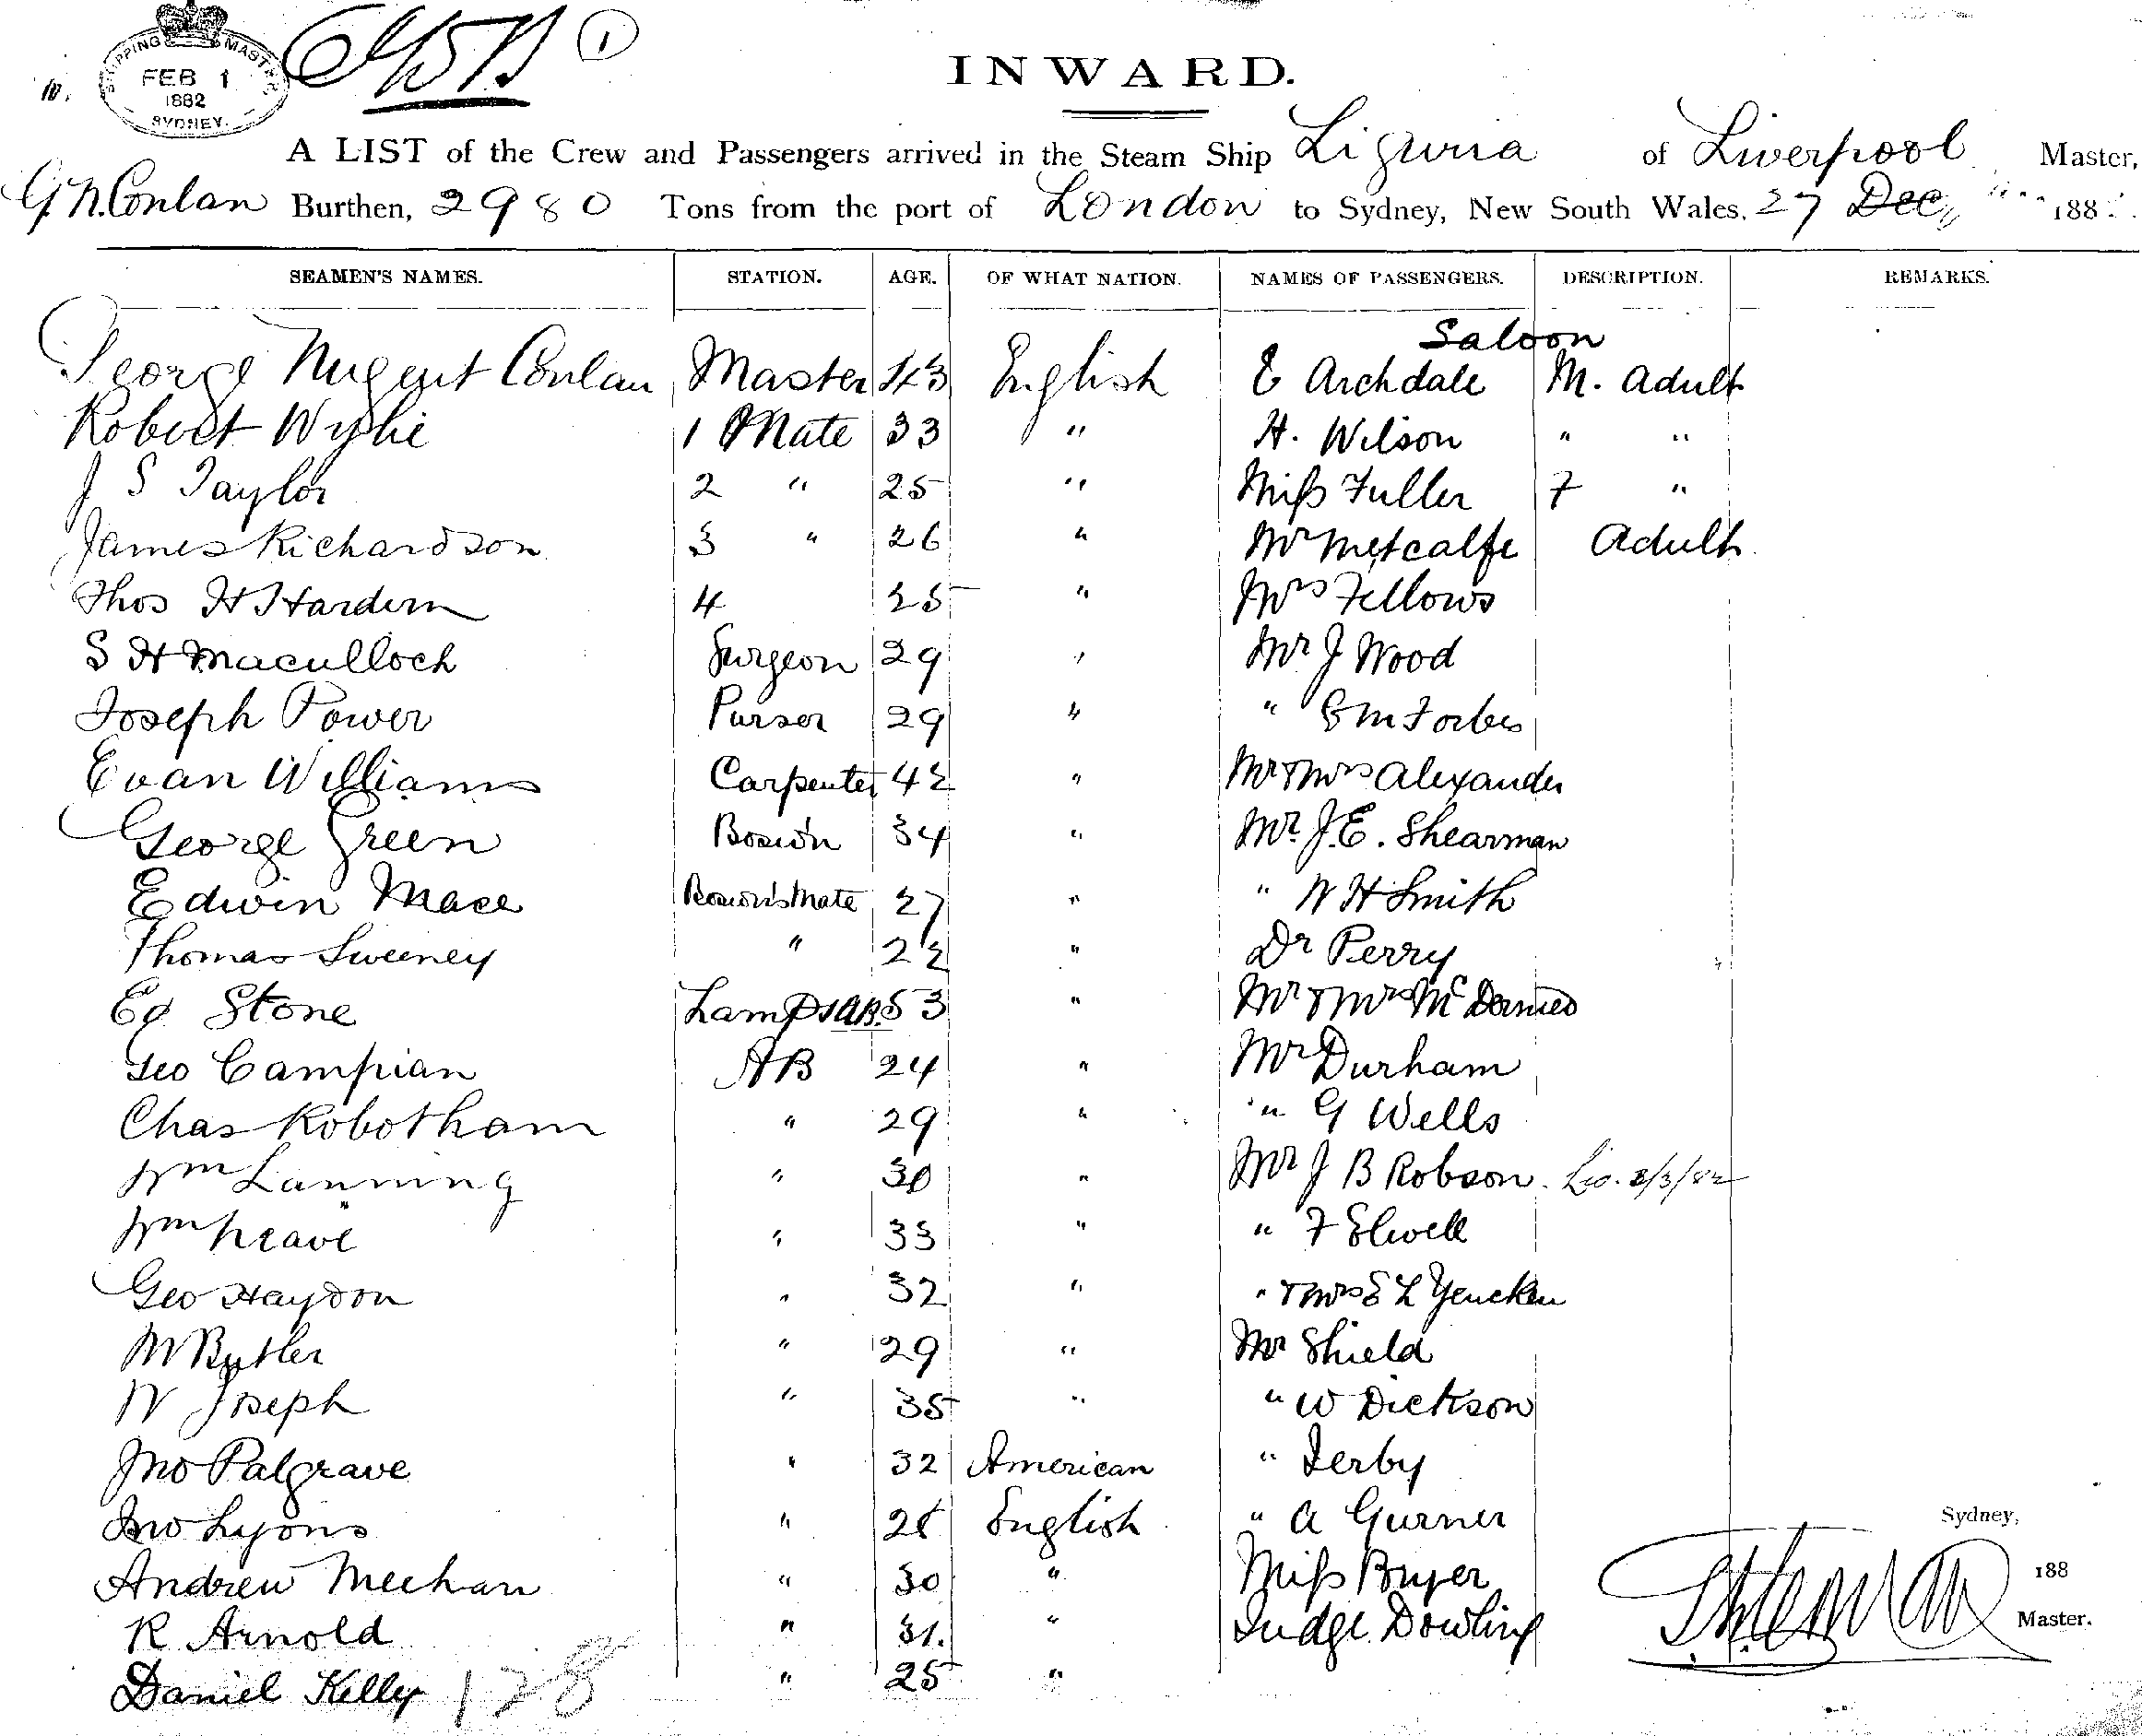 SHIPPING MASTER
FEB 1
1882
SYDNEY.
1
INWARD.
A LIST of the Crew and Passengers arrived in the Steam Ship Liguria of Liverpool Master,
G. N. Conlan Burthen, 2980 Tons from the port of London to Sydney, New South Wales, 27 Dec 188
SEAMEN'S NAMES. STATION. AGE. OF WHAT NATION. NAMES OF PASSENGERS. DESCRIPTION. REMARKS.
Saloon
George Nugent Conlan Master 43 English E Archdale M. Adult
Robert Wylie 1 Mate 33 " H. Wilson " "
J S Taylor 2 " 25 " Miss Fuller F "
James Richardson 3 " 26 " Mr Metcalfe Adult
Thos H Hardern 4 25 " Mrs Fellows
S H Maculloch Surgeon 29 " Mr J Wood
Joseph Power Purser 29 " " Forbes
Evan Williams Carpenter 42 " Mr & Mrs Alexander
George Green Bosw'n 34 " Mr. J.E. Shearman
Edwin Mace Bosw'n's Mate 27 " " W H Smith
Thomas Sweeney " 22 " Dr Perry
Ed Stone Lamps AB. 53 " Mr & Mrs
Geo Campian AB 24 " Mr Durham
Chas Robotham " 29 " " G Wells
Wm Lanning " 30 " Mr J B Robson. 3/3/82
Wm Neave " 33 " " F Elwell
Geo Haydon " 32 " " & Mrs E L Yencken
M Butler " 29 " Mr Shield
W Joseph " 35 " " W Dickson
Jno Palgrave " 32 American " Derby
Jno Lyons " English " A Gurner
Andrew Meehan " 30 " Miss
R Arnold " 31. " Judge Dowling
Daniel Kelly " 25 "
128
Sydney,
188
Master.